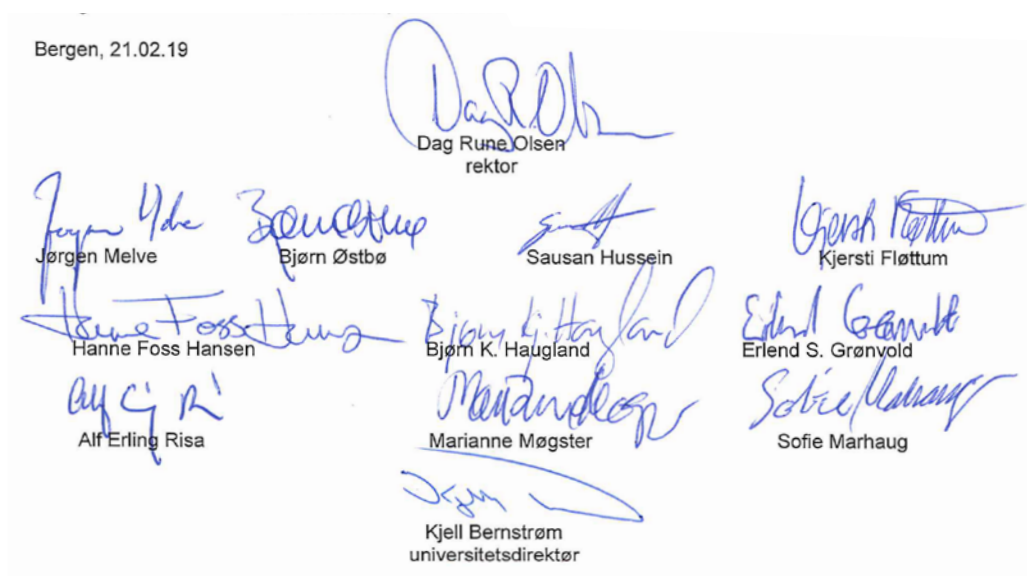 Bergen, 21.02.19
Dag R. Olsen
Dag Rune Olsen
rektor
Jørgen Melve
Bjørn Østbø
Sausan Hussein
Kjersti Fløttum
Hanne Foss Hansen
Hanne Foss Hansen
Bjørn K. Haugland
Erlend S. Grønvold
Alf Erling Risa
Marianne Møgster
Sofie Marhaug
Kjell Bernstrøm
universitetsdirektør